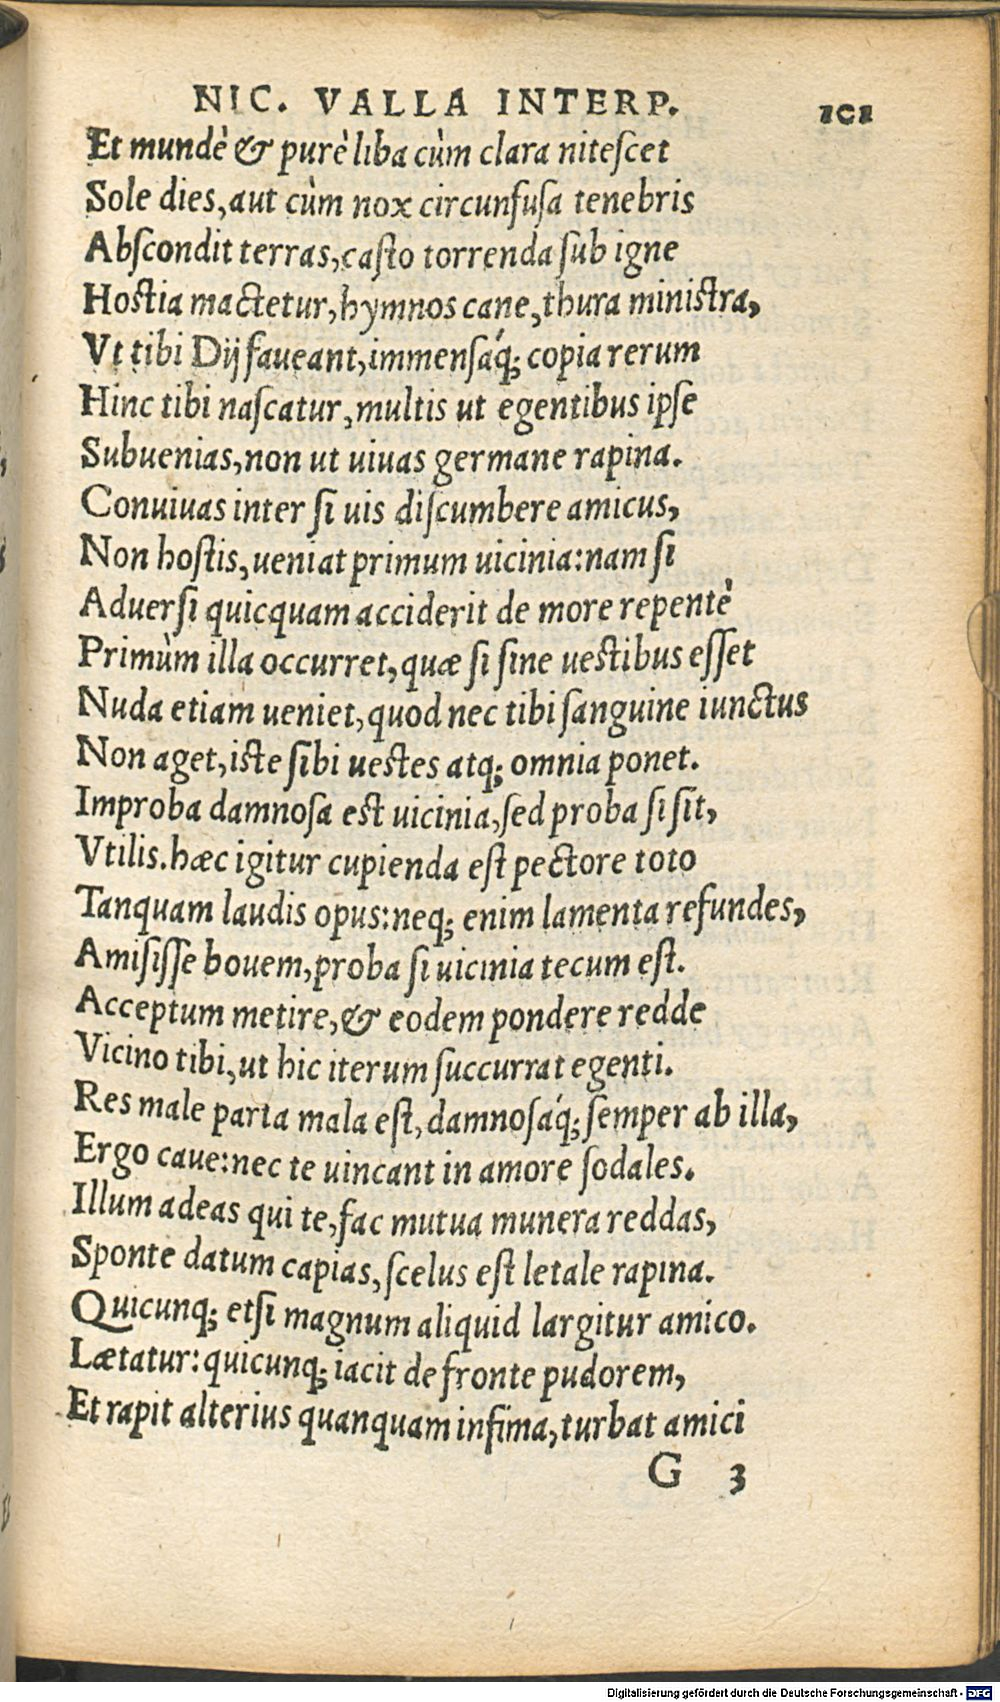 NIC. VALLA INTERP. 101
Et mundè & purè liba cùm clara niteſcet
Sole dies, aut cùm nox circunfuſa tenebris
Abſcondit terras, caſto torrenda ſub igne
Hostia mactetur, hymnos cane, thura ministra,
Vt tibi Dij faueant, immenſáq; copia rerum
Hinc tibi naſcatur, multis ut egentibus ipſe
Subuenias, non ut uiuas germane rapina.
Conuiuas inter ſi uis diſcumbere amicus,
Non hoſtis, ueniat primum uicinia: nam ſi
Aduerſi quicquam acciderit de more repentè
Primùm illa occurret, quæ ſi ſine uestibus eſſet
Nuda etiam ueniet, quod nec tibi ſanguine iunctus
Non aget, iste ſibi uestes atq; omnia ponet.
Improba damnoſa est uicinia, ſed proba ſi ſit,
Vtilis. hæc igitur cupienda eſt pectore toto
Tanquam laudis opus: neq; enim lamenta refundes,
Amiſiſſe bouem, proba ſi uicinia tecum eſt.
Acceptum metire, & eodem pondere redde
Vicino tibi, ut hic iterum ſuccurrat egenti.
Res male parta mala eſt, damnoſáq; ſemper ab illa,
Ergo caue: nec te uincant in amore ſodales.
Illum adeas qui te, fac mutua munera reddas,
Sponte datum capias, ſcelus eſt letale rapina.
Quicunq; etſi magnum aliquid largitur amico.
Lætatur: quicunq; iacit de fronte pudorem,
Et rapit alterius quanquam infima, turbat amici
G 3
Digitalisierung gefördert durch die Deutsche Forschungsgemeinschaft - DFG